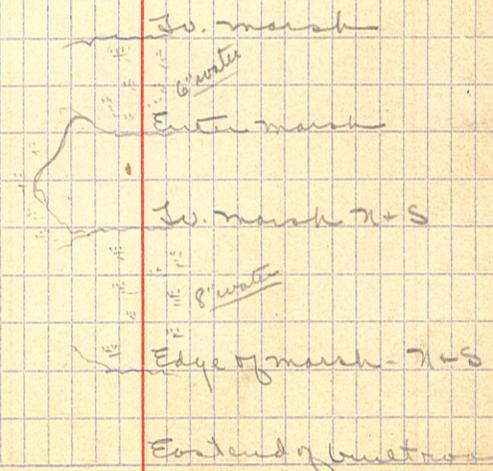 Lv. marsh
6" water
Enter marsh
Lv. marsh N & S
8" water
Edge of marsh - N & S
East end of